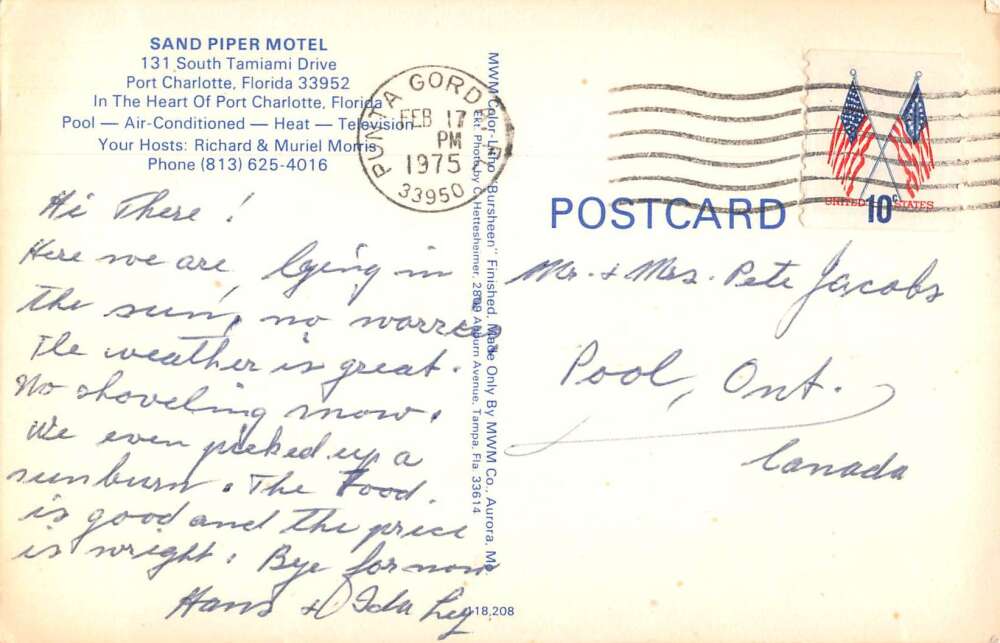 SAND PIPER MOTEL
131 South Tamiami Drive
Port Charlotte, Florida 33952
In The Heart Of Port Charlotte, Florida
Pool — Air-Conditioned — Heat — Television
Your Hosts: Richard & Muriel Morris
Phone (813) 625-4016
Hi There!
Here we are, lying in
the sun, no worries
The weather is great.
No shoveling snow.
We even picked up a
sunburn. The Food.
is good and the price
is wright. Bye for now
Hans & Ida
MWM Color-Litho "Bursheen" Finished, Made Only By MWM Co., Aurora, Mo.
Ekt. Photo by C. Hettesheimer, 2809 Auburn Avenue, Tampa, Fla 33614
118,208
PUNTA GORDA
FEB 17
PM
1975
33950
UNITED 10c STATES
POSTCARD
Mr. & Mrs. Pete Jacobs
Pool, Ont.
Canada